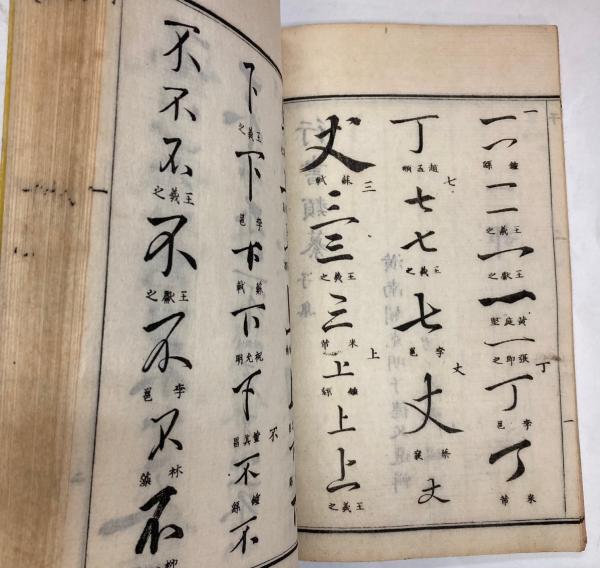 一 一 一 鍾繇 一 一 王羲之 一 王獻之 一 黃庭堅 一 張即之 丁 丁 李邕 丁 米芾
丁 趙孟頫 七 七 七 王羲之 七 李邕 丈 丈 蔡襄 丈
丈 蘇軾 三 三 三 王羲之 三 米芾 上 上 鍾繇 上 上 王羲之
下 王羲之 下 李邕 下 蘇軾 下 祝允明 下 董其昌 不 不 鍾繇 不
不 不 不 王羲之 不 王獻之 不 李邕 不 林藻 不 柳